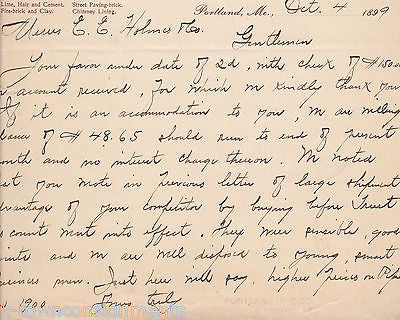 Lime, Hair and Cement. Street Paving-brick.
Fire-brick and Clay. Chimney Lining.
Portland, Me., Oct. 4 1899
Messrs E. E. Holmes & Co.
Gentlemen
Your favor under date of 2d, with check of $150.00
on account received, for which we kindly thank you,
If it is an accommodation to you, we are willing
balance of $48.65 should run to end of present
month and no interest charge thereon. We noted
what you wrote in previous letter of large shipment
advantage of your competitor by buying before Trust
discount went into effect. They were sensible, good
points and we are well disposed to young, smart
business men. Just here will say, higher prices on Pipe
1900
Yours truly
PORTLAND